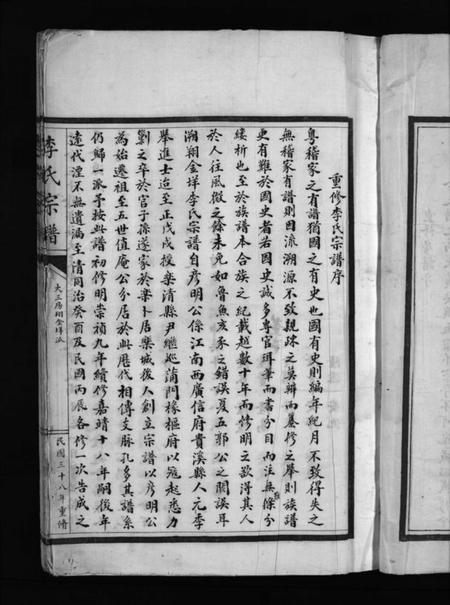 重修李氏宗譜序
粵稽家之有譜猶國之有史也國有史則編年紀月不致得失之
無稽家有譜則因流溯源不致親疎之莫辨而纂修之舉則族譜
史有難於國史者若國史誠多專官珥筆而書分目而注無條分
縷析也至於族譜本合族之紀載越數十年而修明之欲得其人
於人往風微之餘未免如魯魚亥豕之錯誤夏五郭公之闕誤耳
溯朔金垟李氏宗譜自彥明公係江南西廣信府貴溪縣人元季
舉進士造至正戊戌授樂清縣尹繼地蒲門椽樞府以寇起悉力
劉之卒於官子孫遂家於樂卜居樂城後人創立宗譜以彥明公
為始遷祖至五世值庵公分居於此歷代相傳支脉孔多其譜系
仍歸一派予按此譜初修明崇禎九年續修嘉靖十八年嗣後年
遠代湮不無遺漏至清同治癸酉及民國丙辰各修一次告成之
李氏宗譜
大三房朔金垟派
民國三十八年重脩